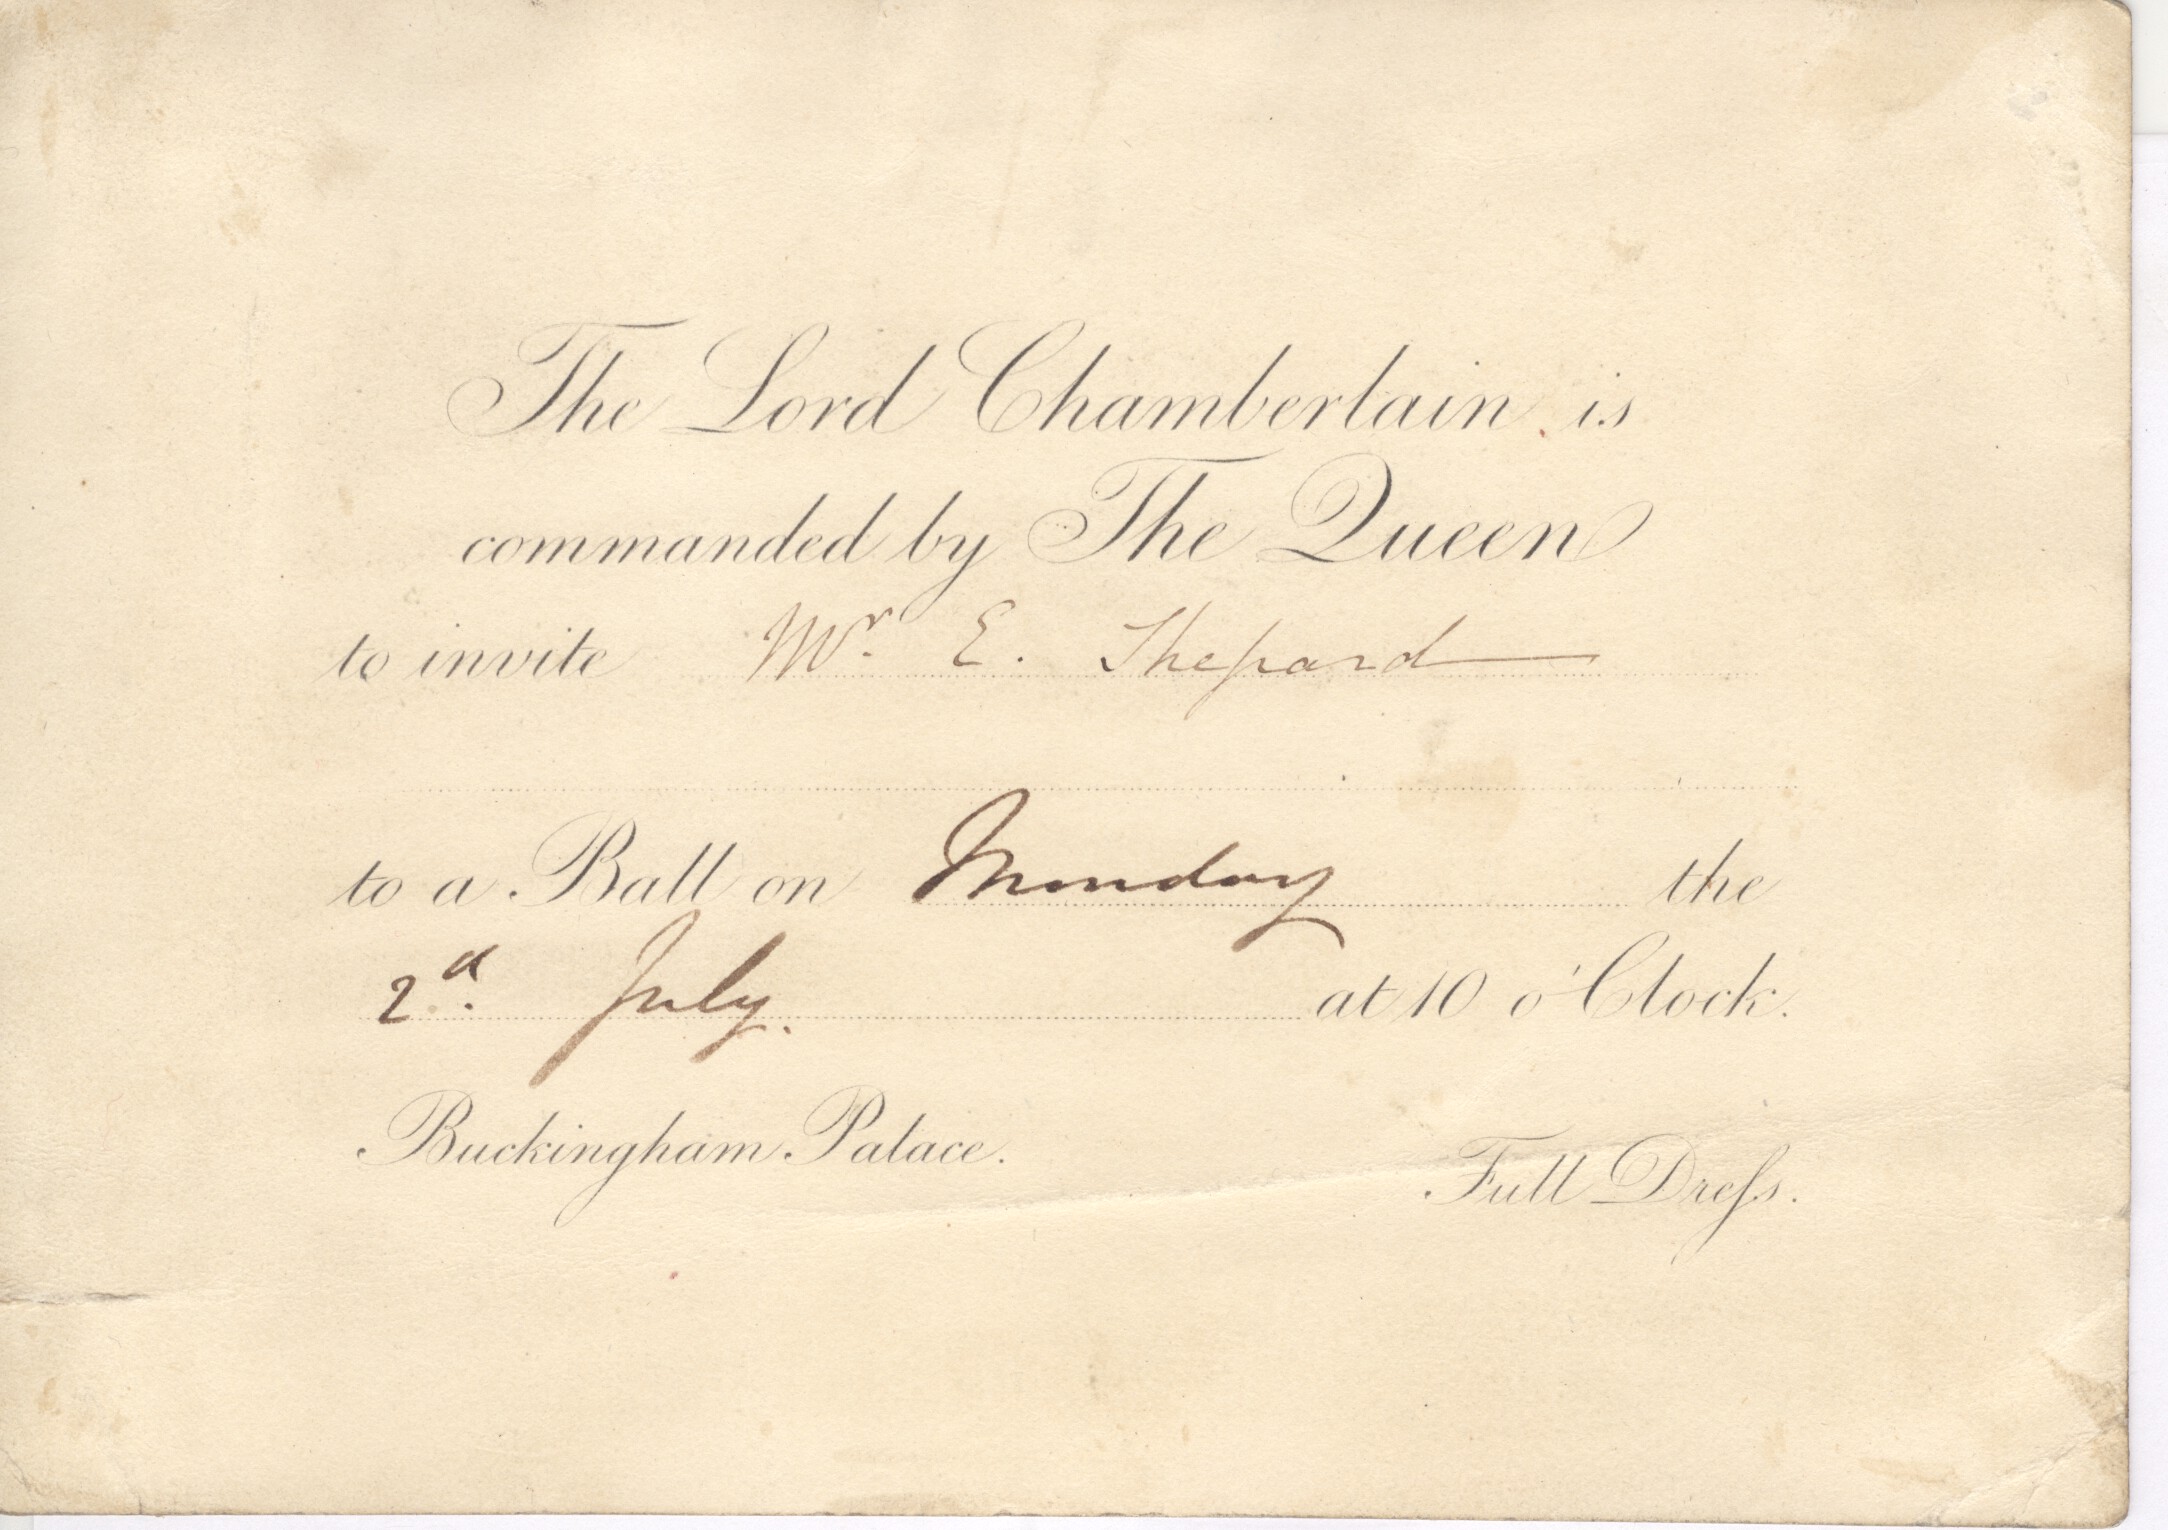 The Lord Chamberlain is
commanded by The Queen
to invite Mr. E. Shepard
to a Ball on Monday the
2d. July. at 10 o'Clock.
Buckingham Palace.
Full Dreſs.